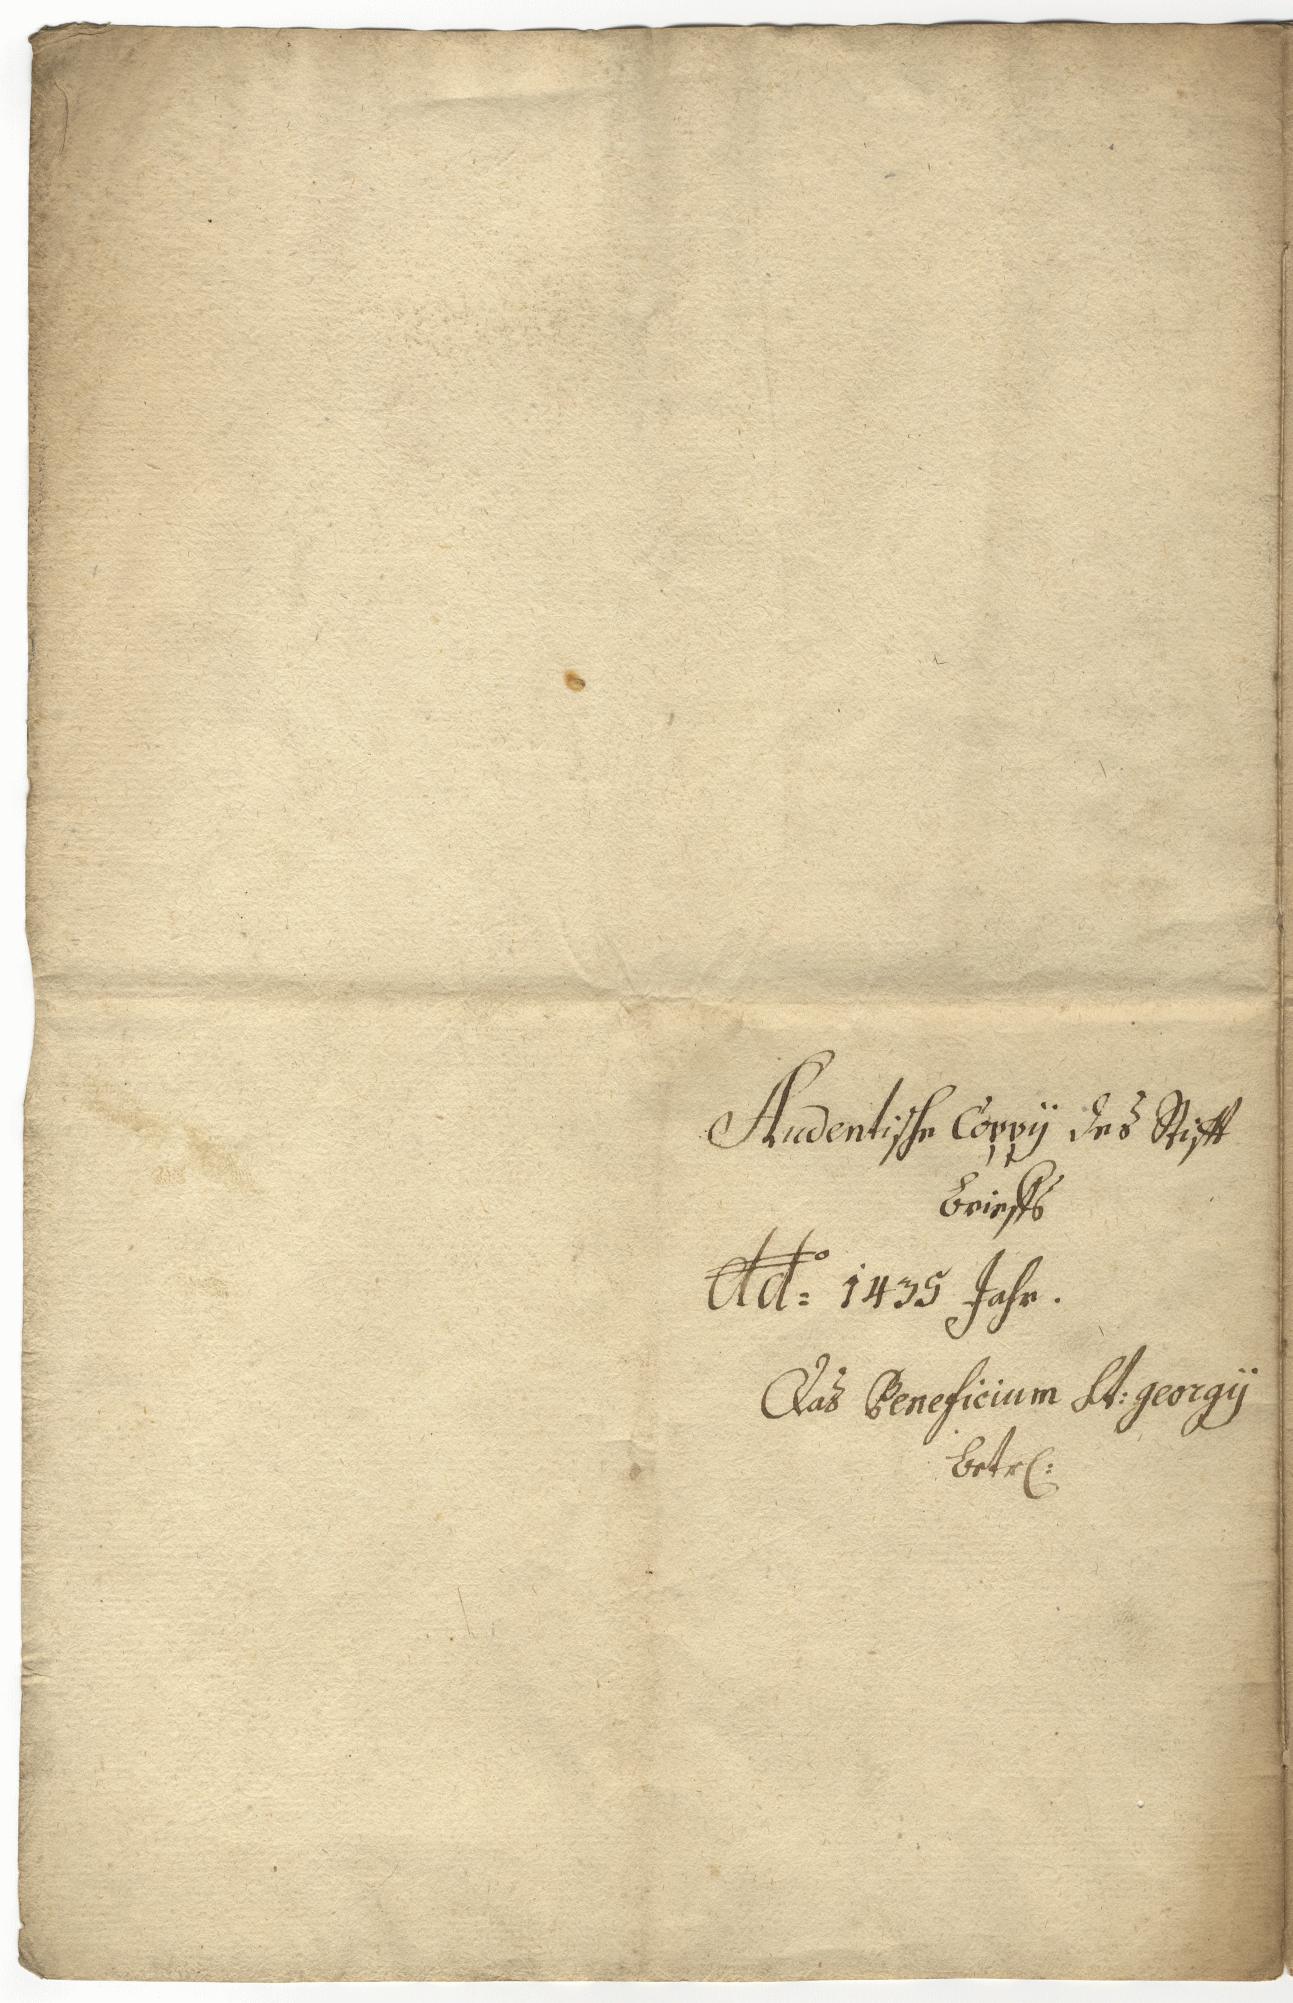 Audentische Coppÿ des Stifft
Brieffs
Ad:o 1435 Jahr.
Das Beneficium St: georgÿ
betr: